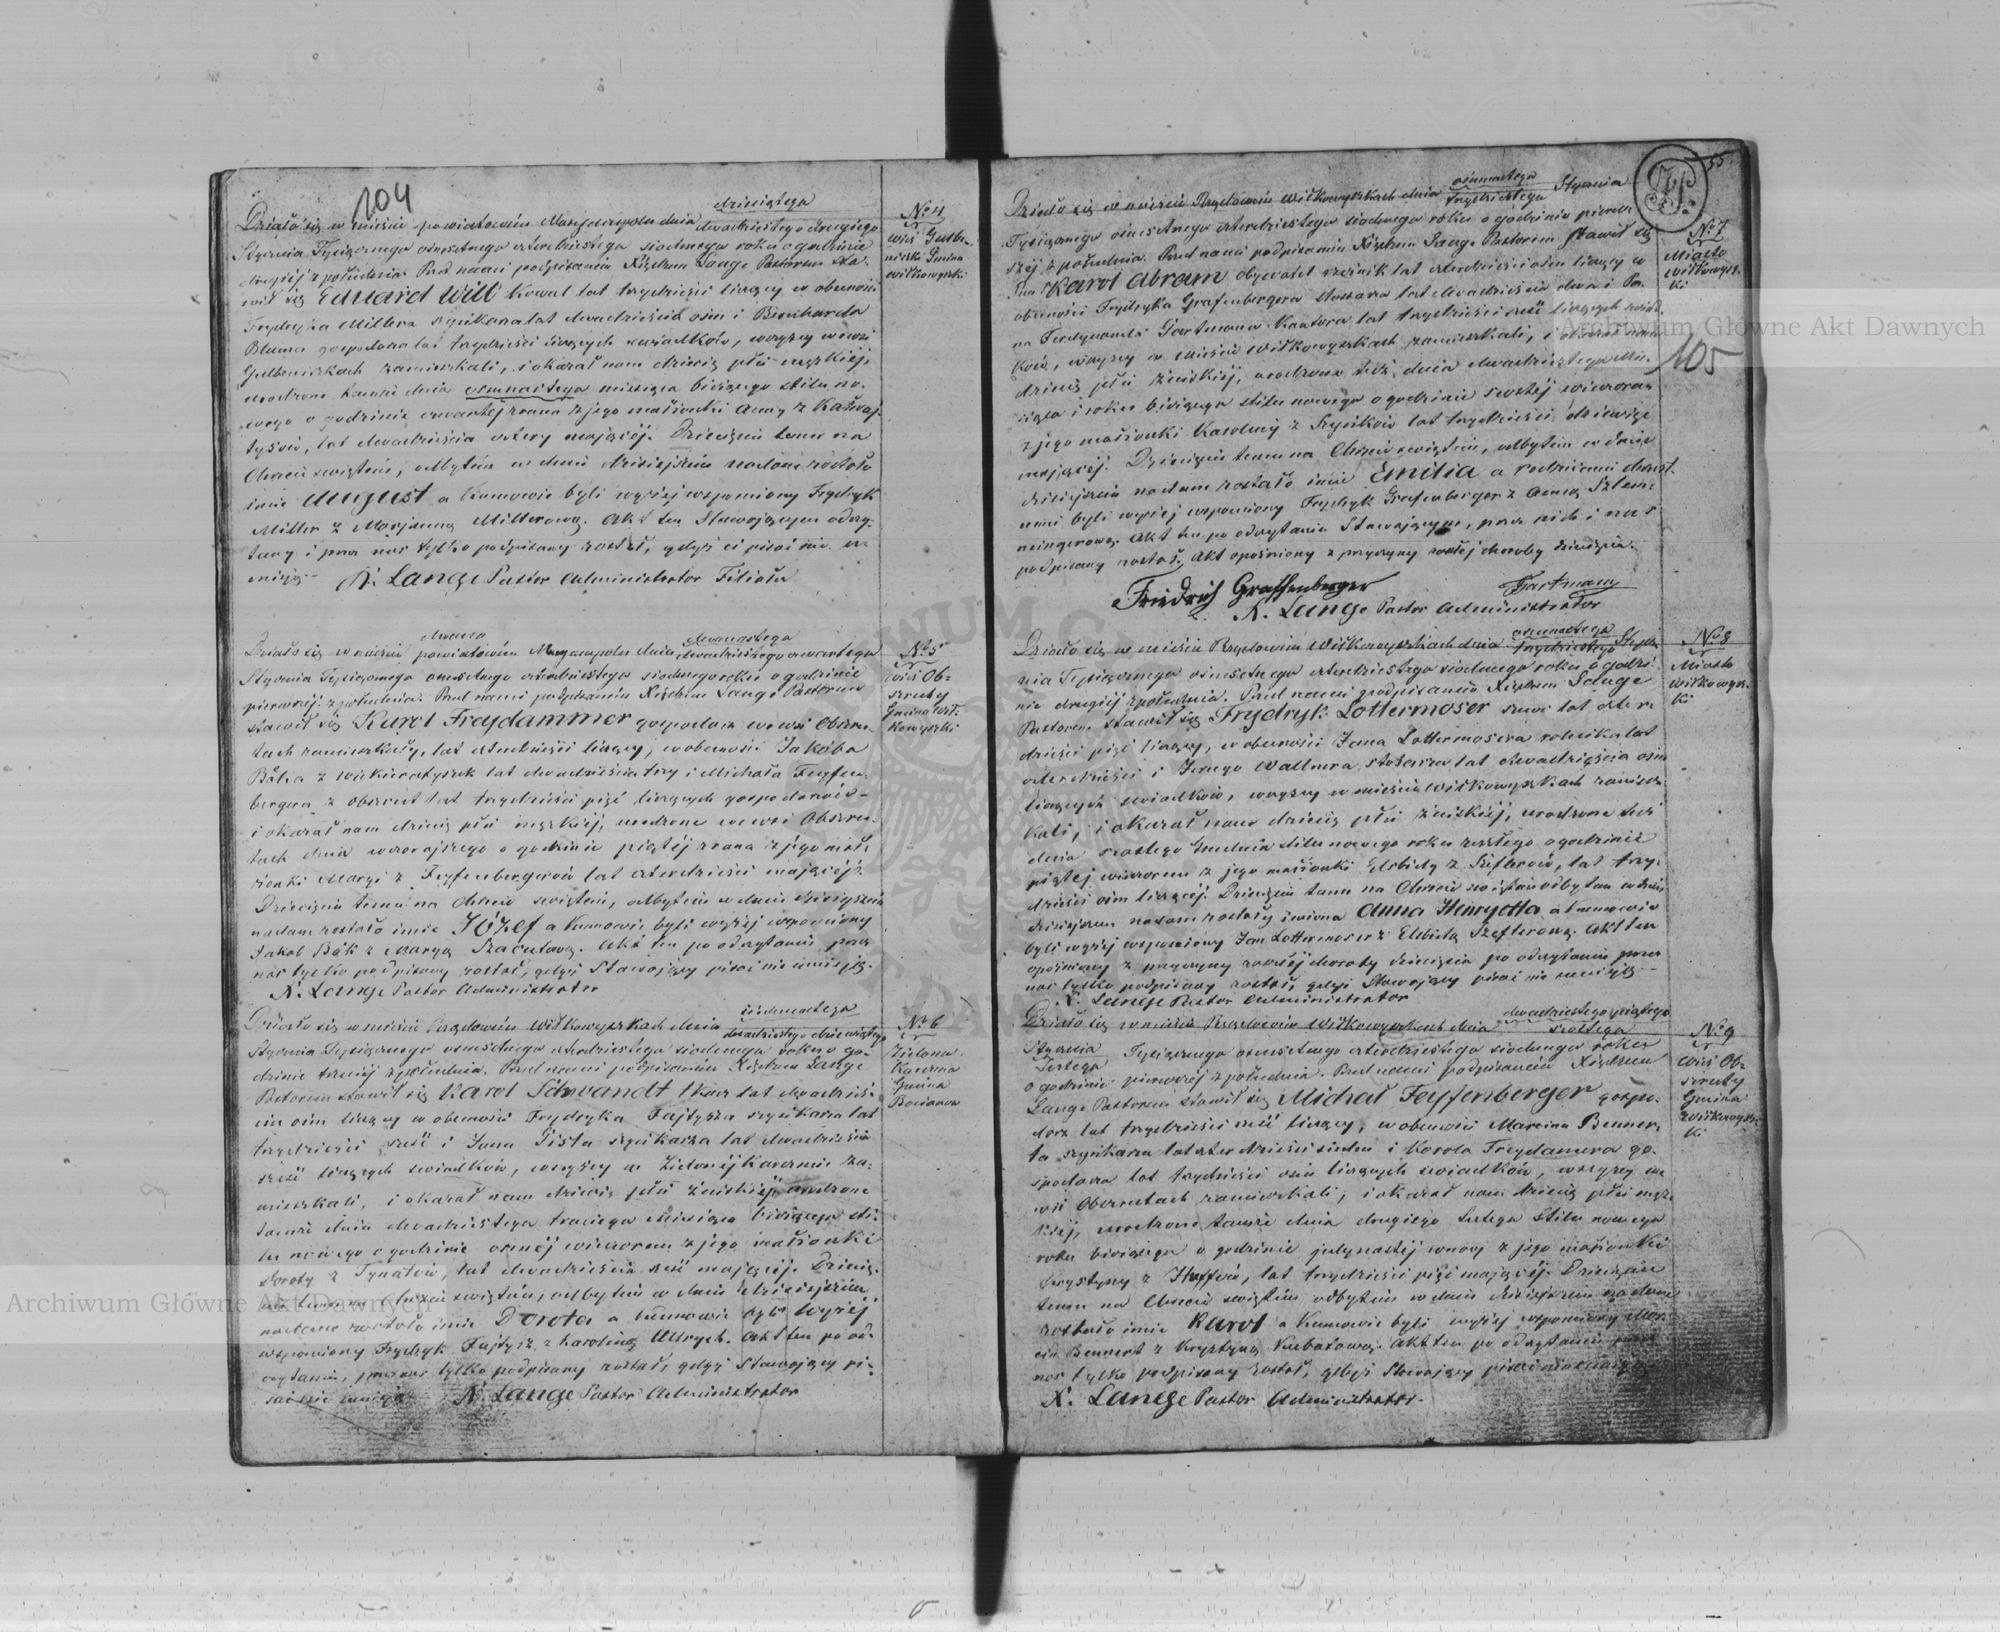 104
dziesiątego
Działo się w mieście powiatowém Maryampolu dnia dwudziestego drugiego
Stycznia Tysiącznego ośmsetnego czterdziestego siódmego roku o godzinie
drugiej z południa. Przed nami podpisanym Xiędzem Lange Pastorem sta-
wił się Eduard Will Kowal lat trzydzieści liczący w obecności
Frydryka Millera szynkarza lat dwadzieścia ośm i Bernharda
Bluma gospodarza lat trzydzieści liczących świadków, wszyscy w wsi
zamieszkali, i okazał nam dziecię płci męzkiej,
urodzone tamże dnia osmnastego miesiąca bieżącego stilu no-
wego o godzinie czwartej zrana z jego małżonki Anny z
lat dwadzieścia cztery mającej. Dziecięciu temu na
Chrzcie świętém, odbytém w dniu dzisiejszém nadane zostało
imie August a Kumowie byli wyżej wspomniony Frydryk
Miller z Maryanną Millerową. Akt ten Stawającym odczy-
tany i przez nas tylko podpisany został, gdyż ci pisać nie u-
mieją.
X. Lange Pastor Administrator Filiału
No 4
wieś
Gmina
Wiłkowyski
dwunastego
Działo się w mieście powiatowém Maryampolu dnia dwudziestego czwartego
Stycznia Tysiącznego ośmsetnego czterdziestego siódmego roku o godzinie
pierwszej z południa. Przed nami podpisanym Xiędzem Lange Pastorem
stawił się Karol Freydammer gospodarz we wsi Obszru-
tach zamieszkały, lat czterdzieści liczący, w obecności Jakóba
lat dwadzieścia trzy i Michała Feyfen-
bergera z Obszrut lat trzydzieści pięć liczących gospodarzów-
i okazał nam dziecię płci męzkiej, urodzone we wsi Obszru-
tach dnia wczorajszego o godzinie piątej zrana z jego mał-
żonki Maryi z Feyfenbergerów lat czterdzieści mającej.
Dziecięciu temu na Chrzcie świętém, odbytém w dniu dzisiejszém
nadane zostało imie Józef a Kumowie byli wyżej wspomniony
Jakób z Maryą Akt ten po odczytaniu przez
nas tylko podpisany został, gdyż Stawający pisać nie umieją.
X. Lange Pastor Administrator
No 5
wieś Ob-
szruty
Gmina Wił-
kowyski
siedmnastego
Działo się w mieście Rządowém Wiłkowyszkach dnia dwudziestego dziewiątego
Stycznia Tysiącznego ośmsetnego czterdziestego siódmego roku o go-
dzinie trzeciej z południa. Przed nami podpisanym Xiędzem Lange
Pastorem stawił się Karol Schwandt tkacz lat dwadzieś-
cia ośm liczący w obecności Frydryka Fajtysza szynkarza lat
trzydzieści sześć i Jana Pista szynkarza lat dwadzieścia
sześć liczących świadków, wszyscy w Zielonej Karczmie za-
mieszkali, i okazał nam dziecię płci żeńskiej, urodzone
tamże dnia dwudziestego trzeciego miesiąca bieżącego sti-
lu nowego o godzinie ósmej wieczorem z jego małżonki
Doroty z Tynatów, lat dwadzieścia sześć mającej. Dziecię-
ciu temu na Chrzcie świętém, odbytém w dniu dzisiejszém,
nadane zostało imie Dorota a Kumowie byli wyżej
wspomniony Frydryk Fajtysz z Karoliną Ullrych. Akt ten po od-
czytaniu, przez nas tylko podpisany został, gdyż Stawający pi-
sać nie umieją. X. Lange Pastor Administrator
No 6
Zielona
Karczma
Gmina
55
ósmnastego
Działo się w mieście Rządowém Wiłkowyszkach dnia trzydziestego Stycznia
Tysiącznego ośmsetnego czterdziestego siódmego roku o godzinie pierw-
szej z południa. Przed nami podpisanym Xiędzem Lange Pastorem stawił się
Karol Abram obywatel rzeźnik lat czterdzieści ośm liczący w
obecności Frydryka Grafenbergera stolarza lat dwadzieścia dwa i Pa-
na Ferdynanda Gartmana Kantora lat trzydzieści sześć liczących świad-
ków, wszyscy w mieście Wiłkowyszkach zamieszkali, i okazał nam
dziecię płci żeńskiej, urodzone też dnia dwudziestego mie-
siąca i roku bieżącego stilu nowego o godzinie szóstej wieczorem
z jego małżonki Karoliny z lat trzydzieści dziewięć
mającej. Dziecięciu temu na Chrzcie świętém, odbytém w dniu
dzisiejszém nadane zostało imie Emilia a rodzicami chrzest-
nemi byli wyżej wspomniony Frydryk Grafenberger z Anną Szlem-
meingerową. Akt ten po odczytaniu Stawającym, przez nich i nas
podpisany został. Akt opóźniony z przyczyny zaszłej choroby dziecięcia.
Friedrich Graffenberger
Gartmann
X. Lange Pastor Administrator
No 7
Miasto
Wiłkowysz-
ki
105
ósmnastego
Działo się w mieście Rządowém Wiłkowyszkach dnia trzydziestego Stycz-
nia Tysiącznego ośmsetnego czterdziestego siódmego roku o godzi-
nie drugiej z południa. Przed nami podpisanym Xiędzem Lange
Pastorem stawił się Frydryk Lottermoser szewc lat czter-
dzieści pięć liczący, w obecności Jana Lottermosera rolnika lat
czterdzieści i Jerzego Wallnera stolarza lat dwadzieścia ośm
liczących świadków, wszyscy w mieście Wiłkowyszkach zamiesz-
kali, i okazał nam dziecię płci żeńskiej, urodzone też
dnia szóstego Grudnia stilu nowego roku zeszłego o godzinie
piątej wieczorem z jego małżonki Elżbiety z Szefterów, lat trzy-
dzieści ośm liczącej. Dziecięciu temu na Chrzcie świętém odbytém w dniu
dzisiejszém nadane zostały imiona Anna Henryetta a Kumowie
byli wyżej wspomniony Jan Lottermoser z Elżbietą Szefterową. Akt ten
opóźniony z przyczyny zaszłej choroby dziecięcia po odczytaniu przez
nas tylko podpisany został, gdyż Stawający pisać nie umieją.
X. Lange Pastor Administrator
No 8
Miasto
Wiłkowysz-
ki
dwudziestego piątego
Działo się w mieście Rządowém Wiłkowyszkach dnia szóstego
Stycznia
Lutego Tysiącznego ośmsetnego czterdziestego siódmego roku
o godzinie pierwszej z południa. Przed nami podpisanym Xiędzem
Lange Pastorem stawił się Michał Feyfenberger gospo-
darz lat trzydzieści sześć liczący, w obecności Marcina Benner-
ta szynkarza lat czterdzieści siedm i Karola Freydamera go-
spodarza lat trzydzieści ośm liczących świadków, wszyscy we
wsi Obszrutach zamieszkali, i okazał nam dziecię płci męz-
kiej, urodzone tamże dnia drugiego Lutego Stilu nowego
roku bieżącego o godzinie jedynastej w nocy z jego małżonki
Krystyny z Hoffów, lat trzydzieści pięć mającej. Dziecięciu
temu na Chrzcie świętém odbytém w dniu dzisiejszém nadane
zostało imie Karol a Kumowie byli wyżej wspomniony Mar-
cin Bennert z Krystyną Kubatową. Akt ten po odczytaniu przez
nas tylko podpisany został, gdyż Stawający pisać nie umieją.
X. Lange Pastor Administrator.
No 9
Wieś Ob-
szruty
Gmina
Wiłkowysz-
ki
Archiwum Główne Akt Dawnych
Archiwum Główne Akt Dawnych